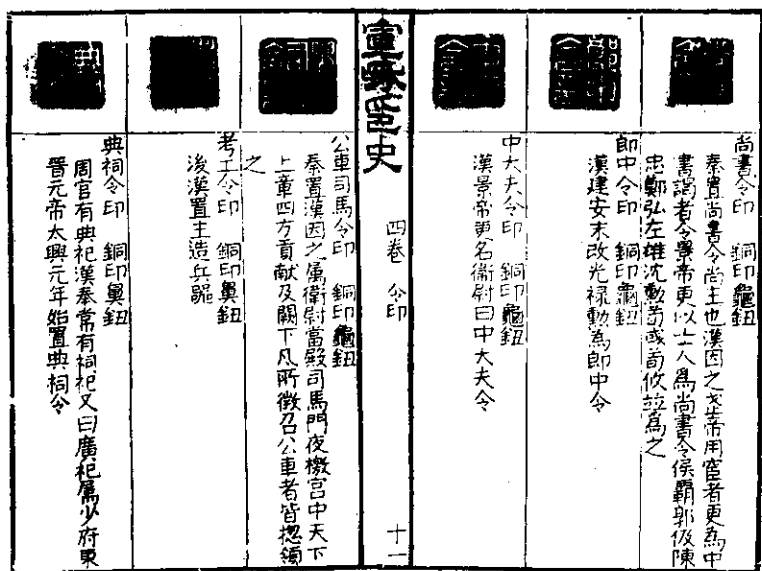 尚書令印　銅印龜鈕
秦置尚書令尚主也漢因之武帝用宦者更為中
書謁者令景帝更以士人為尚書令侯霸郭伋陳
忠鄭弘左雄沈勳荀彧荀攸並為之
郎中令印　銅印龜鈕
漢建安末改光祿勳為郎中令
中大夫令印　銅印龜鈕
漢景帝更名衞尉曰中大夫令
印史
四卷　令印
十一
公車司馬令印　銅印龜鈕
秦置漢因之屬衛尉當殿司馬門夜檄宮中天下
上章四方貢献及闕下凡所徵召公車者皆揔領
之
考工令印　銅印鼻鈕
後漢置主造兵器
典祠令印　銅印鼻鈕
周官有典祀漢奉常有祠祀又曰廣祀屬少府東
晉元帝太興元年始置典祠令